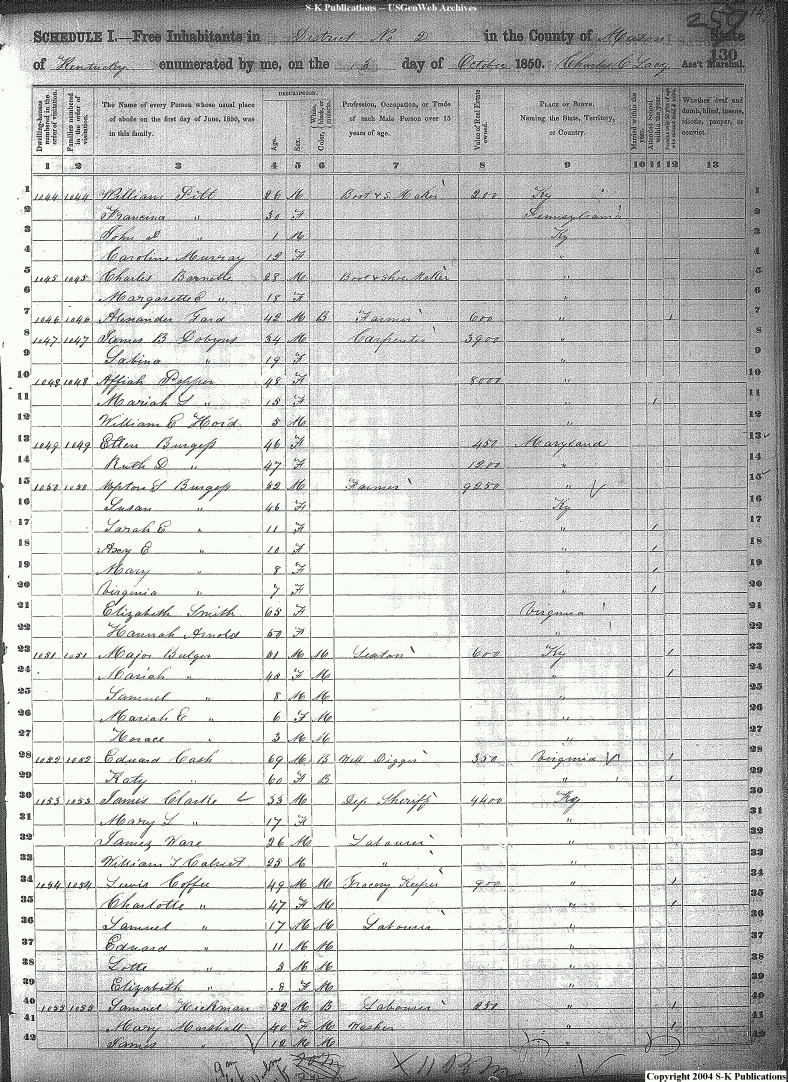 S-K Publications -- USGenWeb Archives
259
SCHEDULE I.—Free Inhabitants in District No 2 in the County of Mason State
130
of Kentucky enumerated by me, on the 13 day of October 1850. Charles C Lacy Ass't Marshal.
Dwelling-houses numbered in the order of visitation.
Families numbered in the order of visitation.
The Name of every Person whose usual place of abode on the first day of June, 1850, was in this family.
DESCRIPTION.
Age.
Sex.
Color, White, black, or mulatto.
Profession, Occupation, or Trade of each Male Person over 15 years of age.
Value of Real Estate owned.
PLACE OF BIRTH. Naming the State, Territory, or Country.
Married within the year.
Attended School within the year.
Whether deaf and dumb, blind, insane, idiotic, pauper, or convict.
1 2 3 4 5 6 7 8 9 10 11 12 13
1 1044 1044 William Pitt 26 M Boot & S. Maker 200 Ky 1
2 Francina " 30 F Pennsylvania 2
3 John D " 1 M Ky 3
4 Caroline Murray 12 F " 4
5 1045 1045 Charles Barnette 28 M Boot & Shoe Maker " 5
6 " 18 F " 6
7 1046 1046 Alexander Gard 42 M B Farmer 600 " 1 7
8 1047 1047 James B Dobyns 34 M Carpenter 3900 " 8
9 Sabina " 19 F " 9
10 1048 1048 Affiah Pepper 48 F 8000 " 10
11 Mariah L " 15 F " 1 11
12 William E Hord 5 M " 12
13 1049 1049 Ellen Burgess 46 F 450 Maryland 13
14 Ruth D " 47 F 1200 " 14
15 1050 1050 Burgess 52 M Farmer 9250 " 15
16 Susan " 46 F Ky 16
17 Sarah E " 11 F " 1 17
18 Axey E " 10 F " 1 18
19 Mary " 8 F " 1 19
20 Virginia " 7 F " 1 20
21 Elizabeth Smith 65 F Virginia 21
22 Hannah Arnold 50 F " 22
23 1051 1051 Major Bulger 51 M M Sexton 600 Ky 1 23
24 Mariah " F M " 1 24
25 Samuel " 8 M M " 25
26 Mariah E " 6 F M " 26
27 Horace " 3 M M " 27
28 1052 1052 Edward Cash 69 M B Well Digger 350 Virginia 1 28
29 Katy " 60 F B " 1 29
30 1053 1053 James Clarke 33 M Dep Sheriff 4400 Ky 30
31 Mary L " 17 F " 31
32 James Ware 26 M Labourer " 32
33 William T Calvert 25 M " " 33
34 1054 1054 Lewis Coffee 49 M M Grocery Keeper 900 " 1 34
35 Charlotte " 47 F M " 1 35
36 Samuel " 17 M M Labourer " 36
37 Edward " 11 M M " 37
38 Lotte " 3 M M " 38
39 Elizabeth " .8 F M " 39
40 1055 1055 Samuel Hickman 52 M B Labourer 250 " 1 40
41 Mary Marshall 40 F M Washer " 1 41
42 James " 12 M M " 42
Copyright 2004 S-K Publications